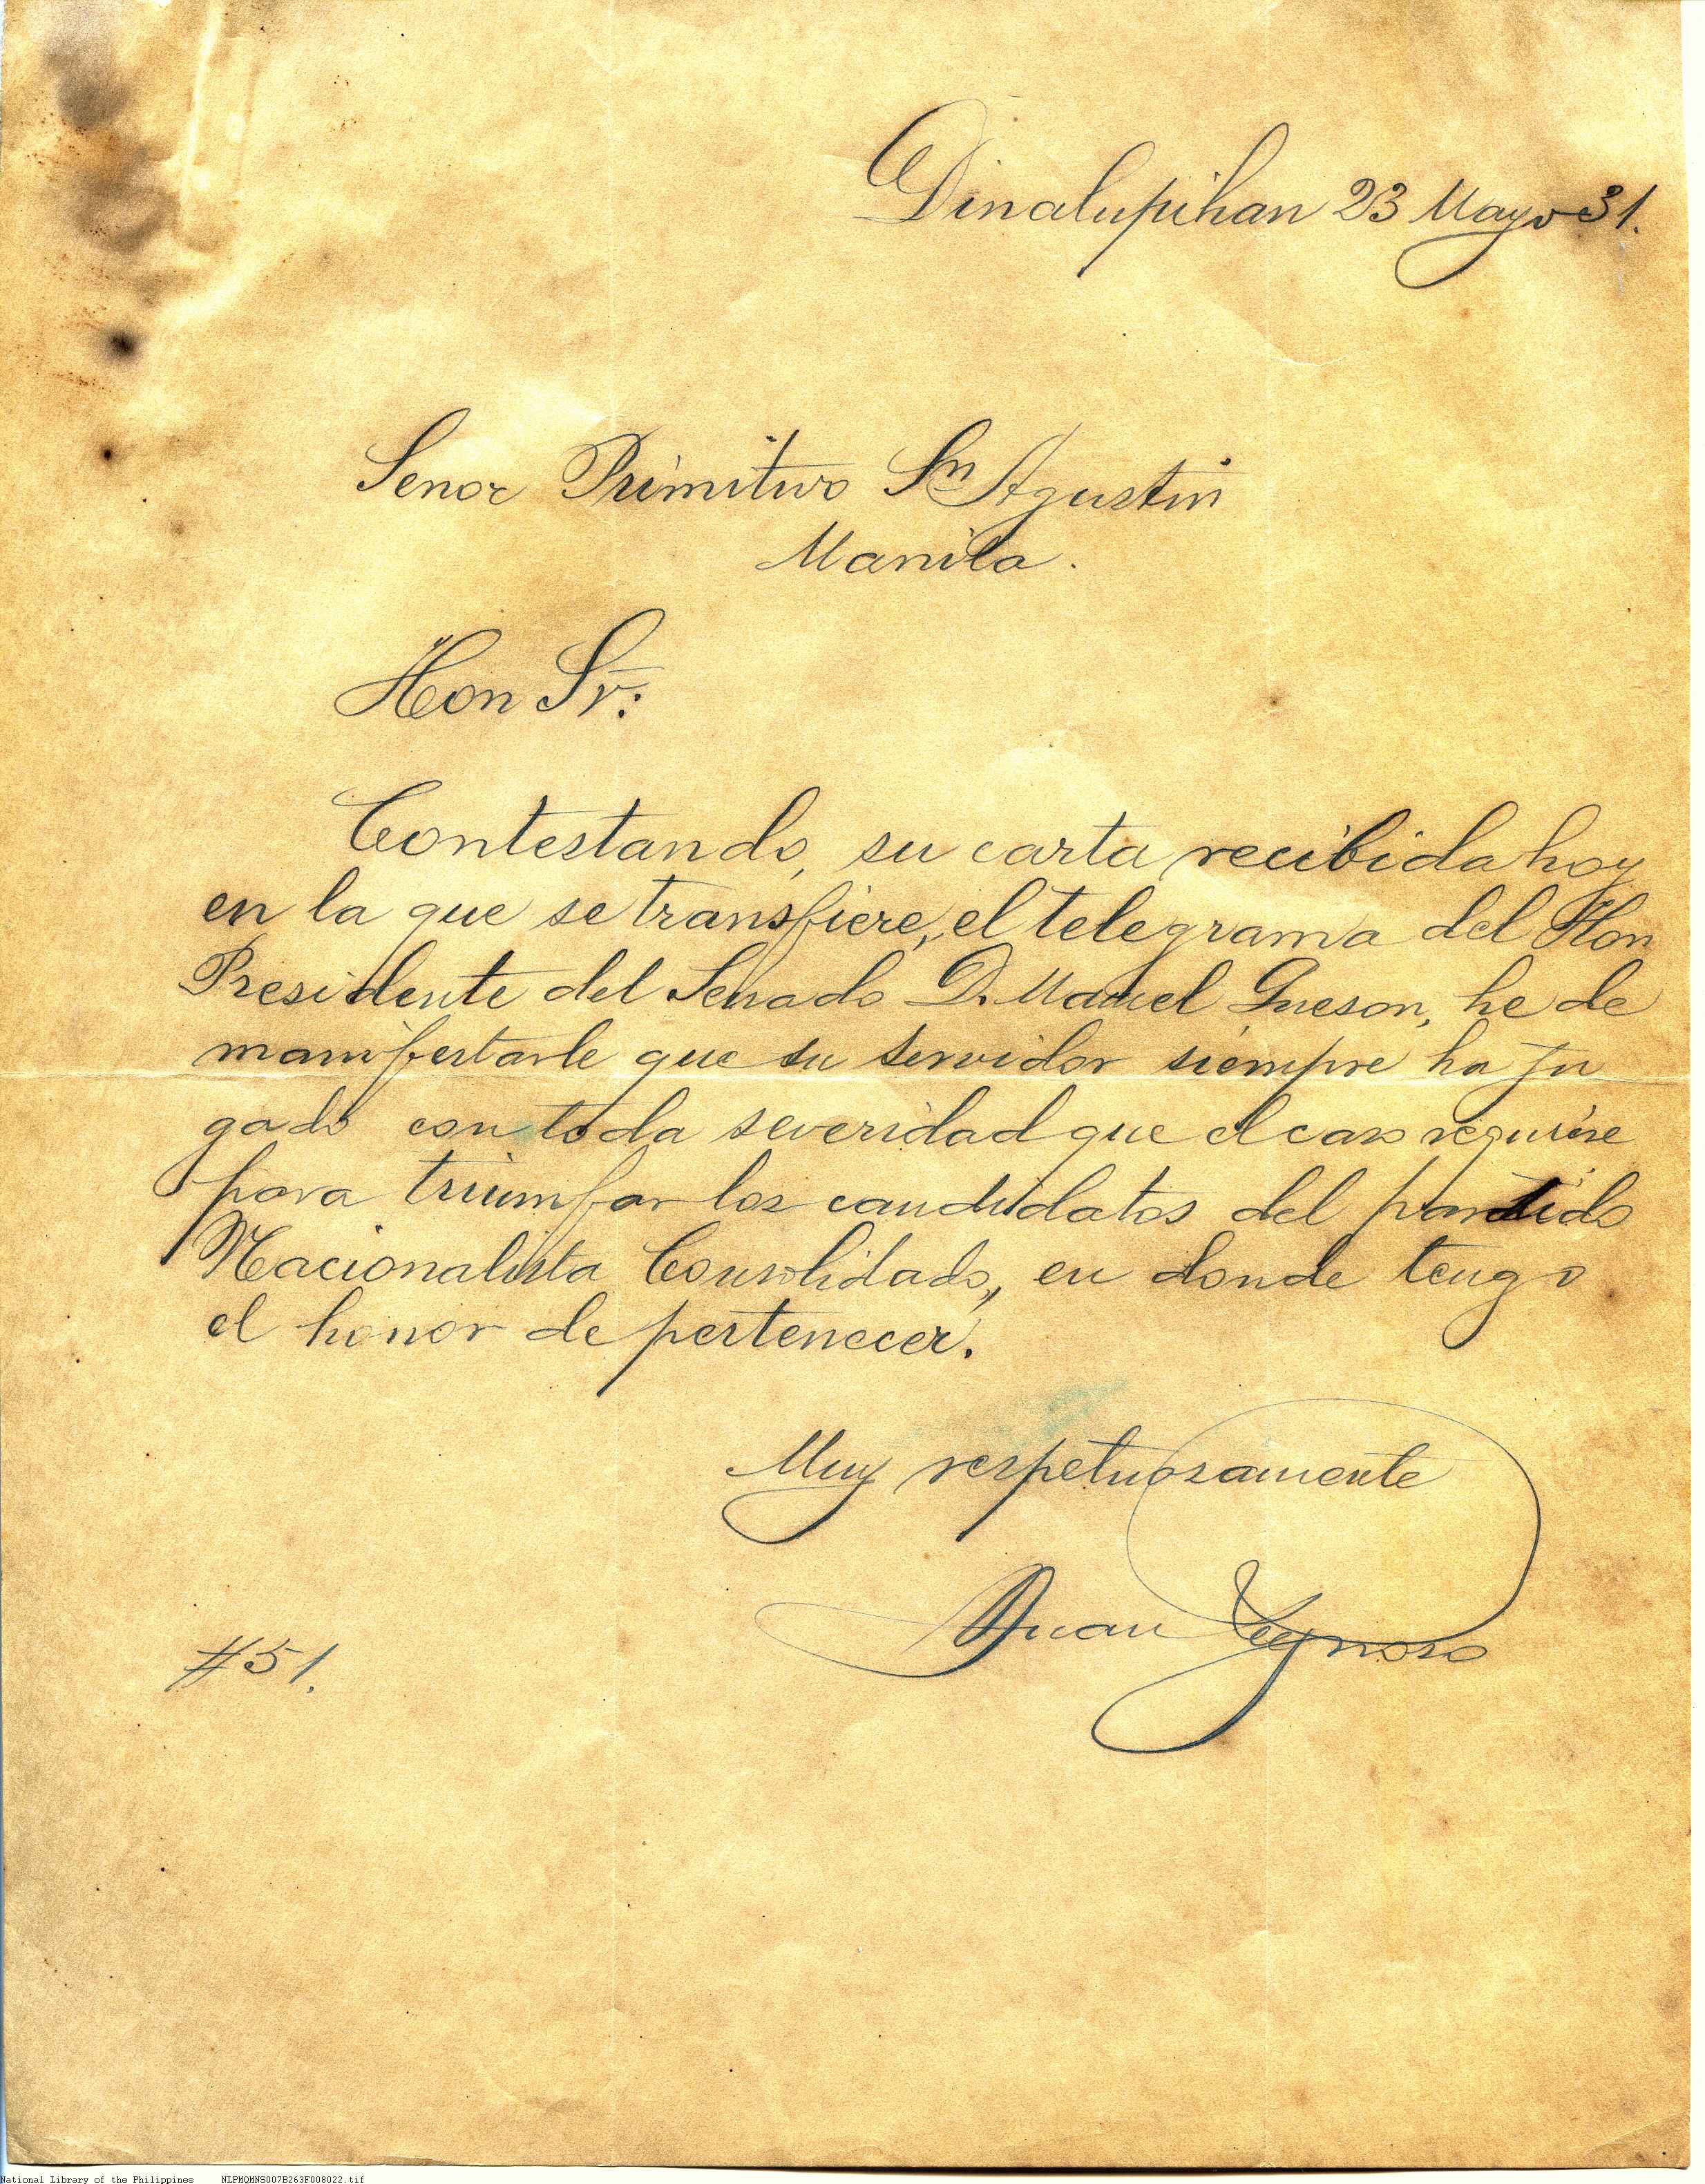 Dinalupihan 23 Mayo 31.
Senor Primitivo Sn Agustin
Manila.
Hon Sr:
Contestando, su carta recibida hoy
en la que se transfiere, el telegrama del Hon
Presidente del Senado D. Manuel Queson, he de
manifestarle que su servidor siempre ha ju
gado con toda severidad que el caso requiere
para triumfar los candidatos del partido
Nacionalista Consolidado, en donde tengo
el honor de pertenecer.
Muy respetuosamente
Juan
#51.
National Library of the Philippines NLPMQMNS007B263F008022.tif